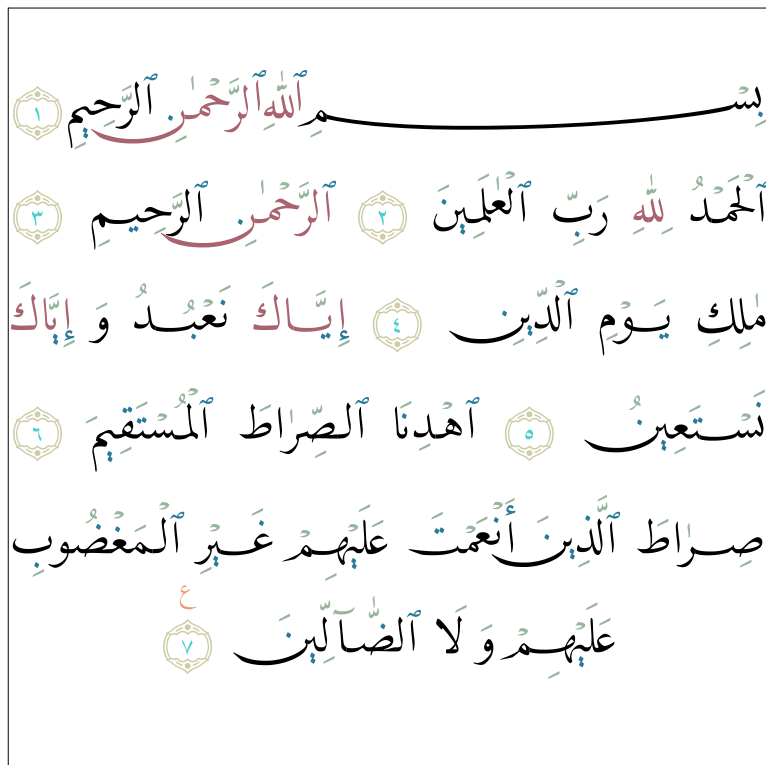 بِسْمِ ٱللّٰهِ ٱلرَّحْمٰنِ ٱلرَّحِيمِ ١
ٱلْحَمْدُ لِلّٰهِ رَبِّ ٱلْعٰلَمِينَ ٢ ٱلرَّحْمٰنِ ٱلرَّحِيمِ ٣
مٰلِكِ يَوْمِ ٱلْدِّينِ ٤ إِيَّاكَ نَعْبُدُ وَ إِيَّاكَ
نَسْتَعِينُ ٥ ٱهْدِنَا ٱلصِّرٰاطَ ٱلْمُسْتَقِيمَ ٦
صِرٰاطَ ٱلَّذِينَ أَنْعَمْتَ عَلَيْهِمْ غَيْرِ ٱلْمَغْضُوبِ
عَلَيْهِمْ وَ لَا ٱلضّٰآلِّينَ ٧ ع